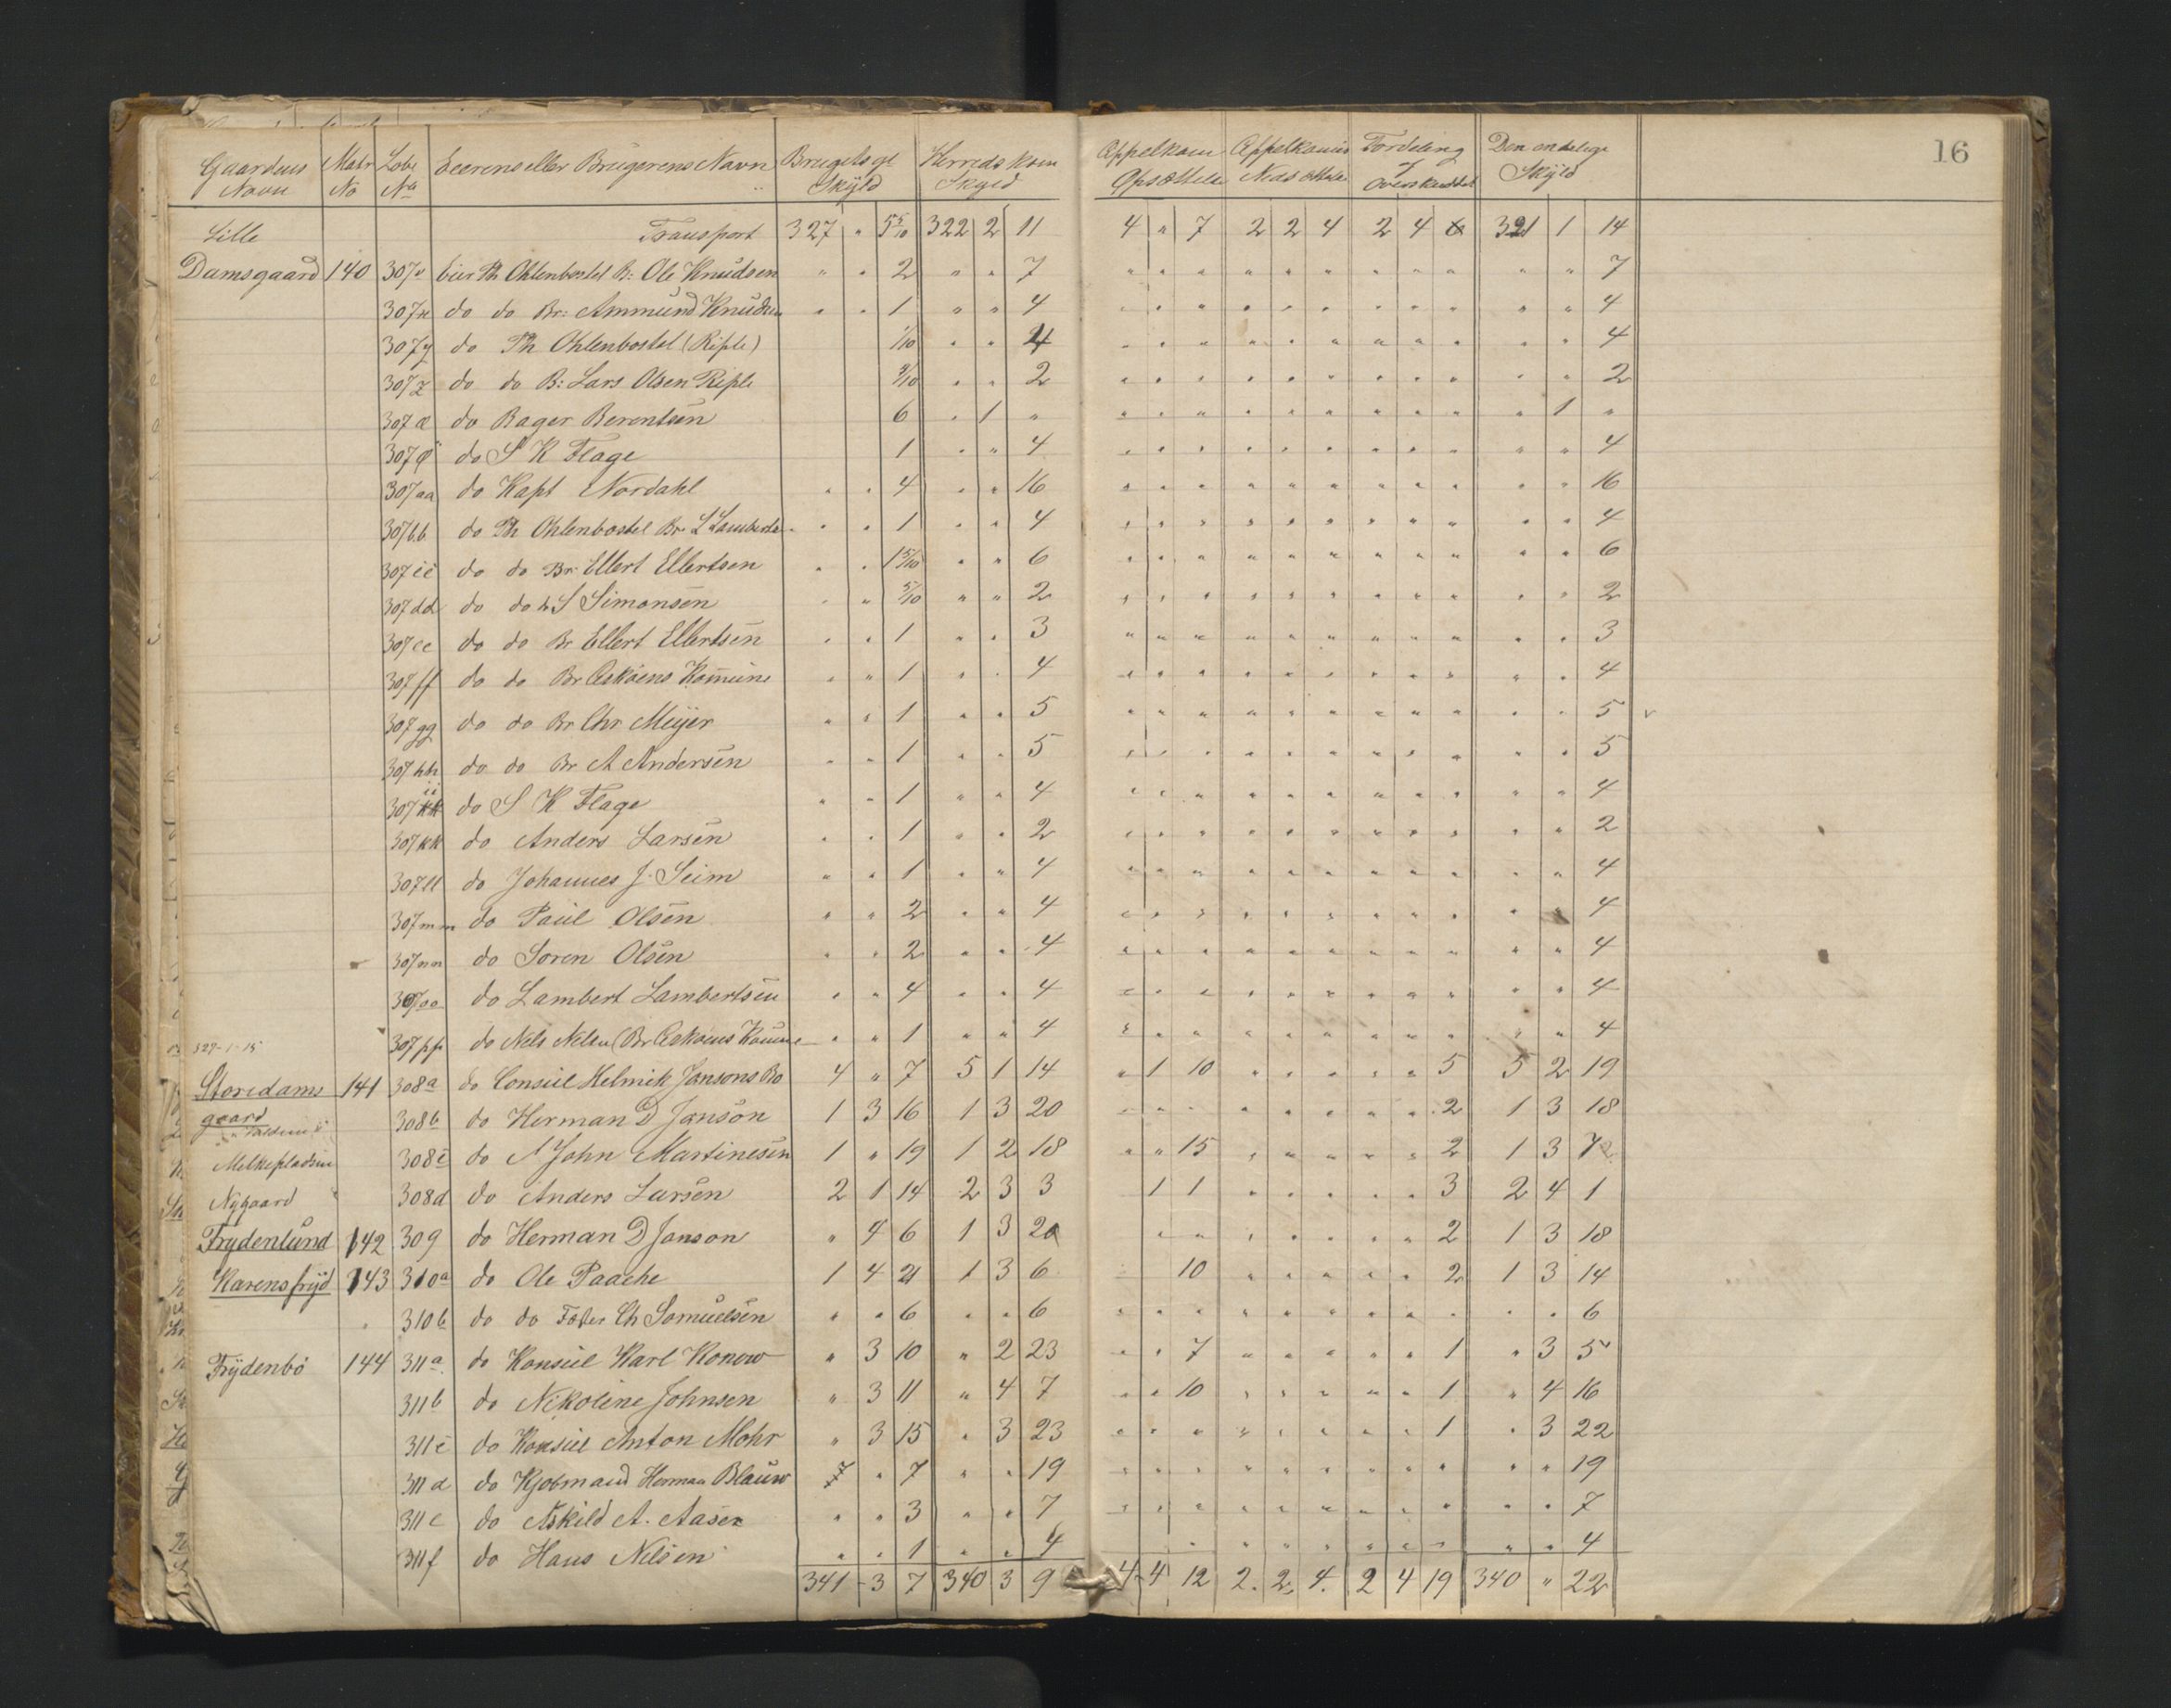 16
Gaardens Navn | Matr No | Løbe No | Eierens eller Brugerens Navn | Brugets gl Skyld | Herredskom Skyld | Appelkom Opsættelse | Appelkomis Nedsættelse | Fordeling af Overskuddet | Den endelige Skyld
Lille | Transport | 327 " 5 5/10 | 322 2 11 | 4 " 7 | 2 2 4 | 2 4 6 | 321 1 14
Damsgaard | 140 | 307v | Eier Th Ohlenbostel B: Ole Knudsen | " " 2 | " " 7 | " " 7
307x | do do Br: Ammund Knudsen | " " 1 | " " 4 | " " 4
307y | do Th Ohlenbostel (Riple) | 1/10 | " " 4 | " " 4
307z | do do B: Lars Olsen Riple | 9/10 | " " 2 | " " 2
307æ | do Bager Berentsen | 6 | " 1 " | " 1 "
307ø | do S K Flage | 1 | " " 4 | " " 4
307aa | do Kapt Nordahl | " " 4 | " " 16 | " " 16
307bb | do Th Ohlenbostel Br L Lambertse | " " 1 | " " 4 | " " 4
307cc | do do Br Ellert Ellertsen | " " 1 5/10 | " " 6 | " " 6
307dd | do do S Simonsen | " " 5/10 | " " 2 | " " 2
307ee | do do Br Ellert Ellertsen | " " 1 | " " 3 | " " 3
307ff | do do Br Askøens Komune | " " 1 | " " 4 | " " 4
307gg | do do Br Chr Meyer | " " 1 | " " 5 | " " 5 v
307hh | do do Br A Andersen | " " 1 | " " 5 | " " 5
307ii | do S K Flage | " " 1 | " " 4 | " " 4
307kk | do Anders Larsen | " " 1 | " " 2 | " " 2
307ll | do Johannes J. Seim | " " 1 | " " 4 | " " 4
307mm | do Paul Olsen | " " 2 | " " 4 | " " 4
307nn | do Soren Olsen | " " 2 | " " 4 | " " 4
307oo | do Lambert Lambertsen | " " 4 | " " 4 | " " 4
327-1-15 | 307pp | do Nels Nelsen (Br Askøens Komune | " " 1 | " " 4 | " " 4
Storedams | 141 | 308a | do Consul Helmik Jansons Bo | 4 " 7 | 5 1 14 | " 1 10 | " " " | " " 5 | 5 2 19
gaard | 308b | do Herman D Janson | 1 3 16 | 1 3 20 | " " " | " " " | " " 2 | 1 3 18
Melkepladsen | 308c | do A John Martinesen | 1 " 19 | 1 2 18 | " " 15 | " " " | " " 2 | 1 3 7
Nygaard | 308d | do Anders Larsen | 2 1 14 | 2 3 3 | 1 1 | " " " | " " 3 | 2 4 1
Frydenlund | 142 | 309 | do Herman D Janson | " 4 6 | 1 3 20 | " " | " " " | " " 2 | 1 3 18
Karensfryd | 143 | 310a | do Ole Paache | 1 4 21 | 1 3 6 | 10 | " " " | " " 2 | 1 3 14
310b | do do Fæster Ch Samuelsen | " " 6 | " " 6 | " " 6
Frydenbø | 144 | 311a | do Konsul Karl Konow | " 3 10 | " 2 23 | " " 7 | " " " | " " 1 | " 3 5
311b | do Nikoline Johnsen | " 3 11 | " 4 7 | " " 10 | " " " | " " 1 | " 4 16
311c | do Konsul Anton Mohr | " 3 15 | " 3 23 | " " " | " " " | " " 1 | " 3 22
311d | do Kjøbmand Herman Blauw | " 7 | " " 19 | " " 19
311e | do Askild A. Aasen | " " 3 | " " 7 | " " 7
311f | do Hans Nilsen | " " 1 | " " 4 | " " 4
341 - 3 7 | 340 3 9 | 4 4 12 | 2. 2. 4. | 2 4 19 | 340 " 22